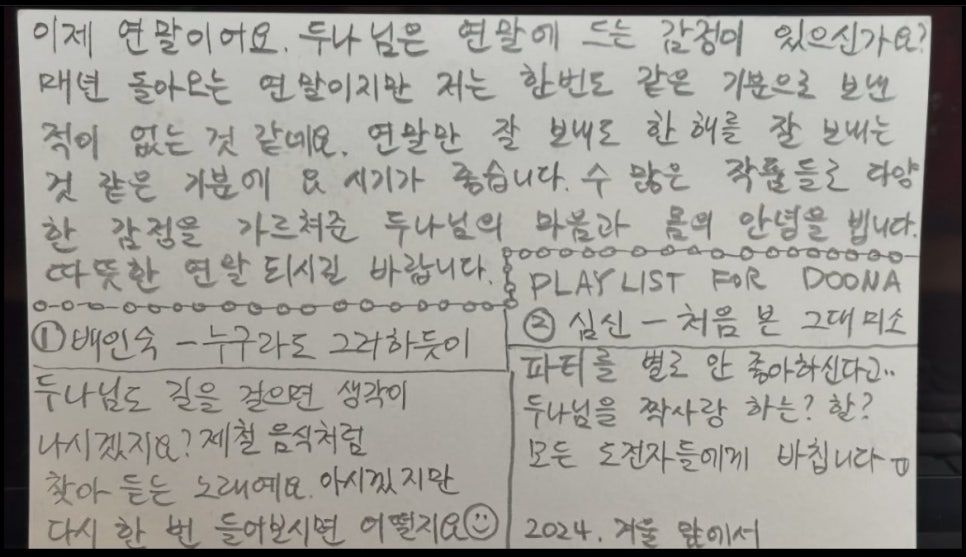 이제 연말이어요. 두나님은 연말에 드는 감정이 있으신가요?
매년 돌아오는 연말이지만 저는 한번도 같은 기분으로 보낸
적이 없는 것 같네요. 연말만 잘 보내도 한 해를 잘 보내는
것 같은 기분에 요 시기가 좋습니다. 수 많은 작품들로 다양
한 감정을 가르쳐준 두나님의 마음과 몸의 안녕을 빕니다.
따뜻한 연말 되시길 바랍니다.
PLAYLIST FOR DOONA
① 배인숙 - 누구라도 그러하듯이
두나님도 길을 걸으면 생각이
나시겠지요? 제철 음식처럼
찾아 듣는 노래예요. 아시겠지만
다시 한 번 들어보시면 어떨지요☺
② 심신 - 처음 본 그대 미소
파티를 별로 안 좋아하신다고..
두나님을 짝사랑 하는? 할?
모든 도전자들에게 바칩니다
2024. 겨울 앞에서